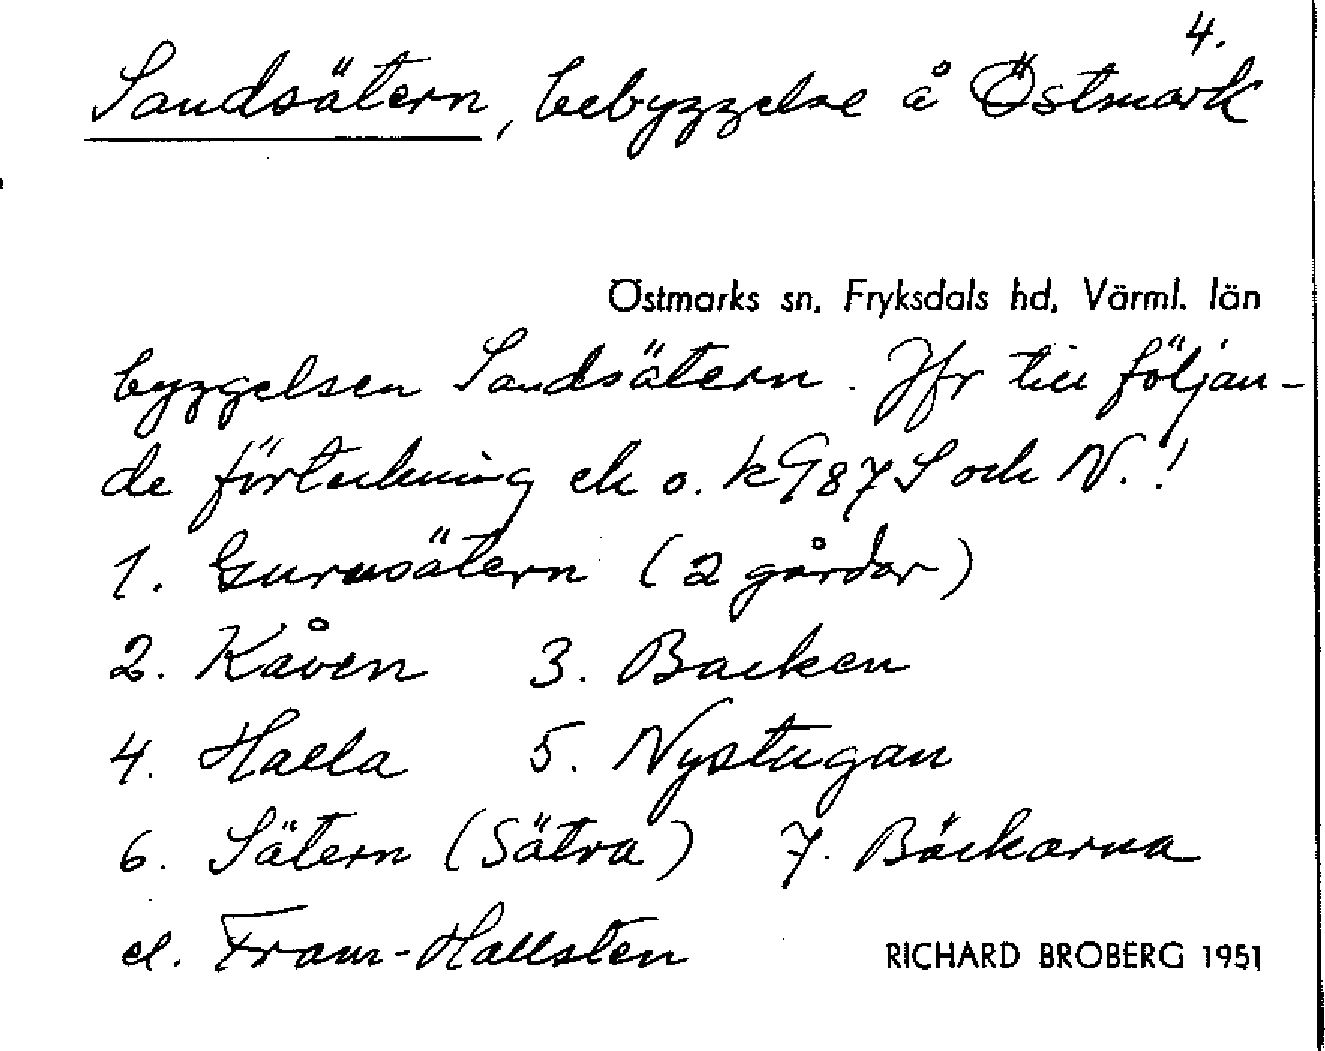 4.
Sandsätern, bebyggelse å Östmark
Östmarks sn. Fryksdals hd. Värml. län
byggelsen Sandsätern. Jfr till följan-
de förteckning ek o. k 987 S och N.!
1. Gurusätern (2 gårdar)
2. Kåven 3. Backen
4. Halla 5. Nystugan
6. Sätern (Sätra) 7. Bäckarna
el. Fram-Hallsten
RICHARD BROBERG 1951